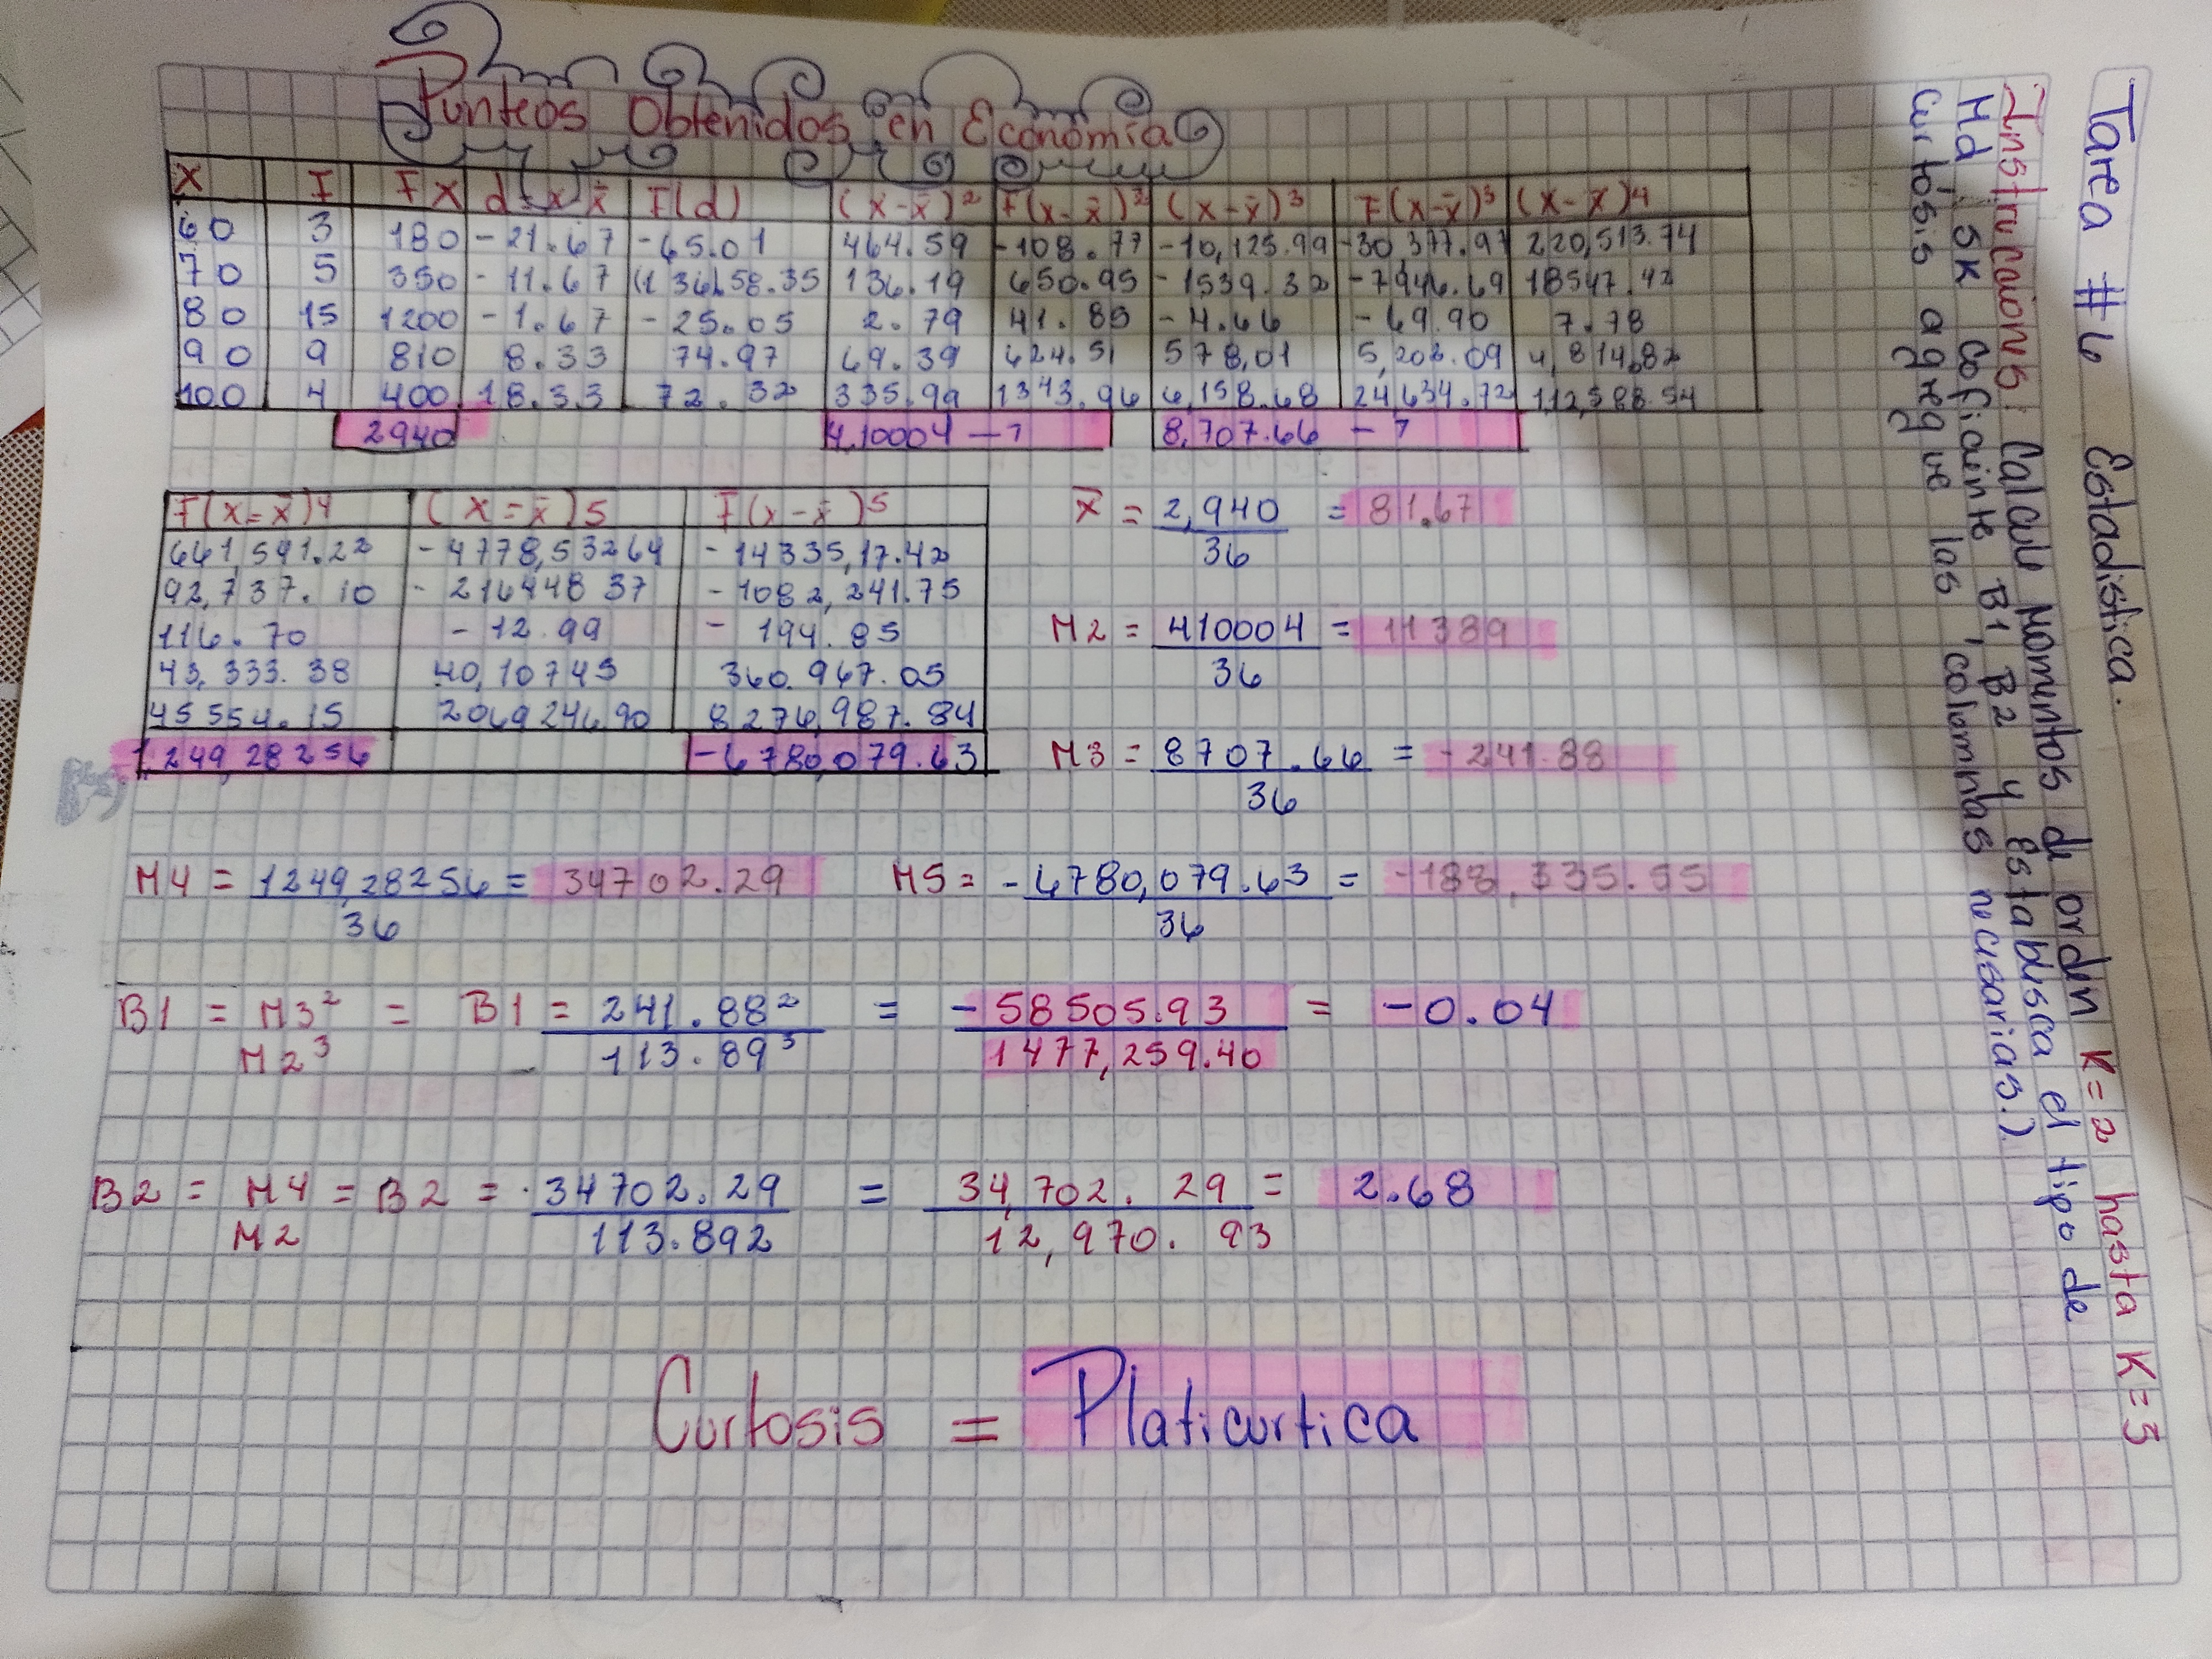 Punteos Obtenidos en Economía
X F FX d=x-x̄ F(d) (x-x̄)2 F(x-x̄)2 (x-x̄)3 F(x-x̄)3 (x-x̄)4
60 3 180 -21.67 -65.01 464.59 -108.77 -10,125.99 -30377.97 220,513.74
70 5 350 -11.67 58.35 136.19 650.95 -1539.32 -7946.69 18547.42
80 15 1200 -1.67 -25.05 2.79 41.85 -4.66 -69.90 7.78
90 9 810 8.33 74.97 69.39 624.51 578,01 5,202.09 4,814,82
100 4 400 18.33 73.32 335.99 1343.96 6,158.68 24634.72 112,588.54
2940 4,10004 -7 8,707.66 -7
F(x=x̄)4 (x=x̄)5 F(x-x̄)5
661,541.22 -4778,53264 -14335,17.42
92,737.10 -21644837 -1082,241.75
116.70 -12.99 -194.85
43,333.38 40,10745 360.967.05
45554.15 206924690 8276,987.84
1,249,28256 -6780,079.63
x̄ = 2,940 = 81.67
36
M2 = 410004 = 11389
36
M3 = 8707.66 = -241.88
36
M4 = 1249,28256 = 34702.29 M5 = -6780,079.63 = -188,335.55
36 36
B1 = M3² = B1 = 241.88² = -58505.93 = -0.04
M2³ 113.89³ 1477,259.40
B2 = M4 = B2 = 34702.29 = 34,702.29 = 2.68
M2 113.892 12,970.93
Curtosis = Platicurtica
Tarea #6 Estadistica.
Instruccaiones: Calcule Momentos de orden K=2 hasta K=5
Md SK Coficiente B1, B2 y Establesca el tipo de
Curtosis agregue las columnas necesarias.)